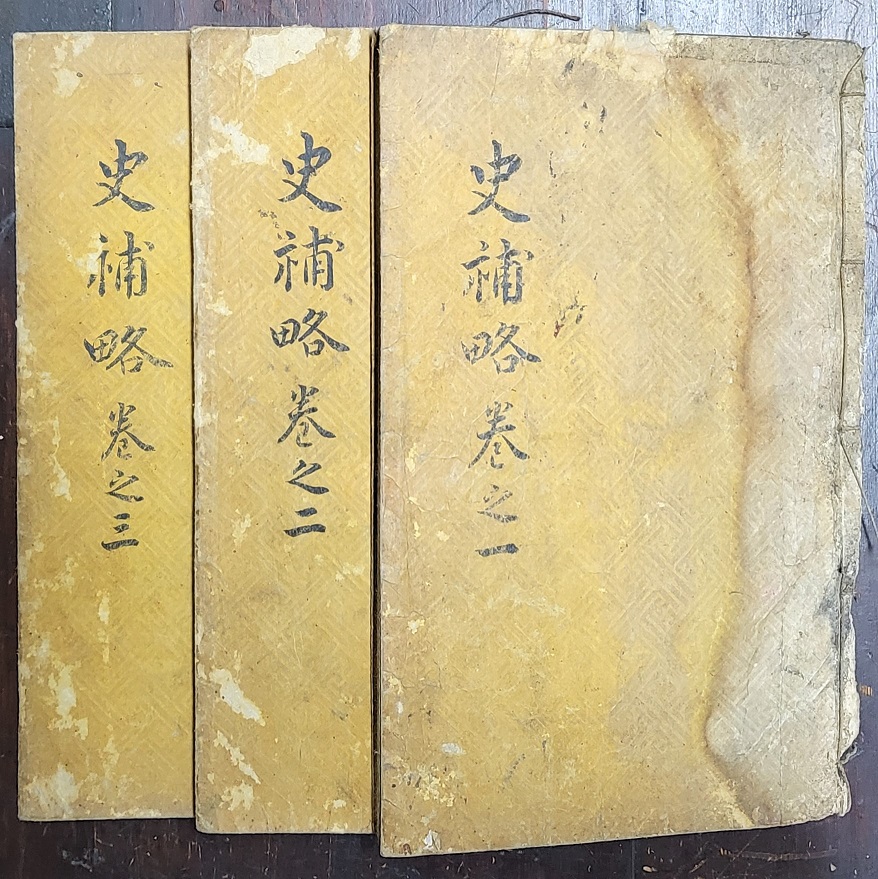 史補略 卷之一
史補略 卷之二
史補略 卷之三